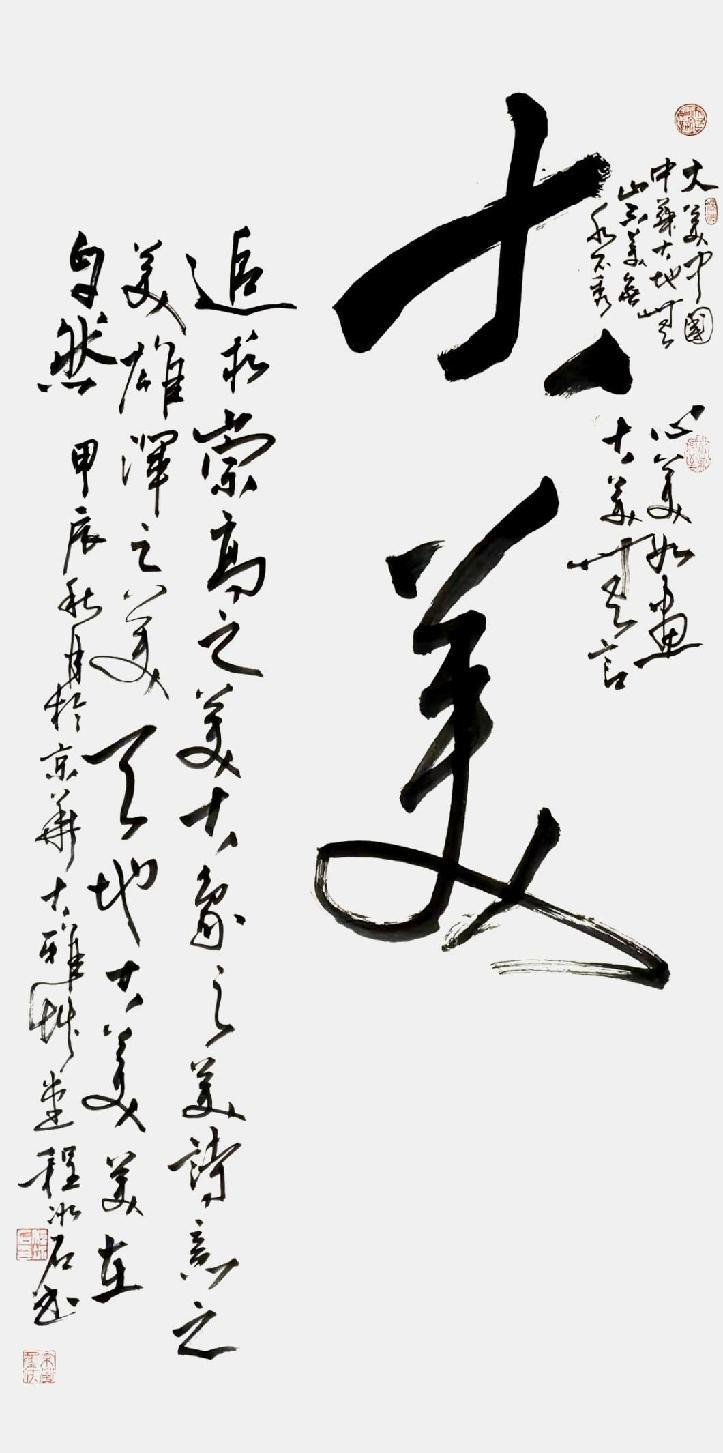 大美中國
中華大地無
山不美無
水不秀
心美如畫
大美無言
大美
追求崇高之美大象之美詩意之
美雄渾之美天地大美美在
自然 甲辰秋月於京華大雅草堂程冰石書